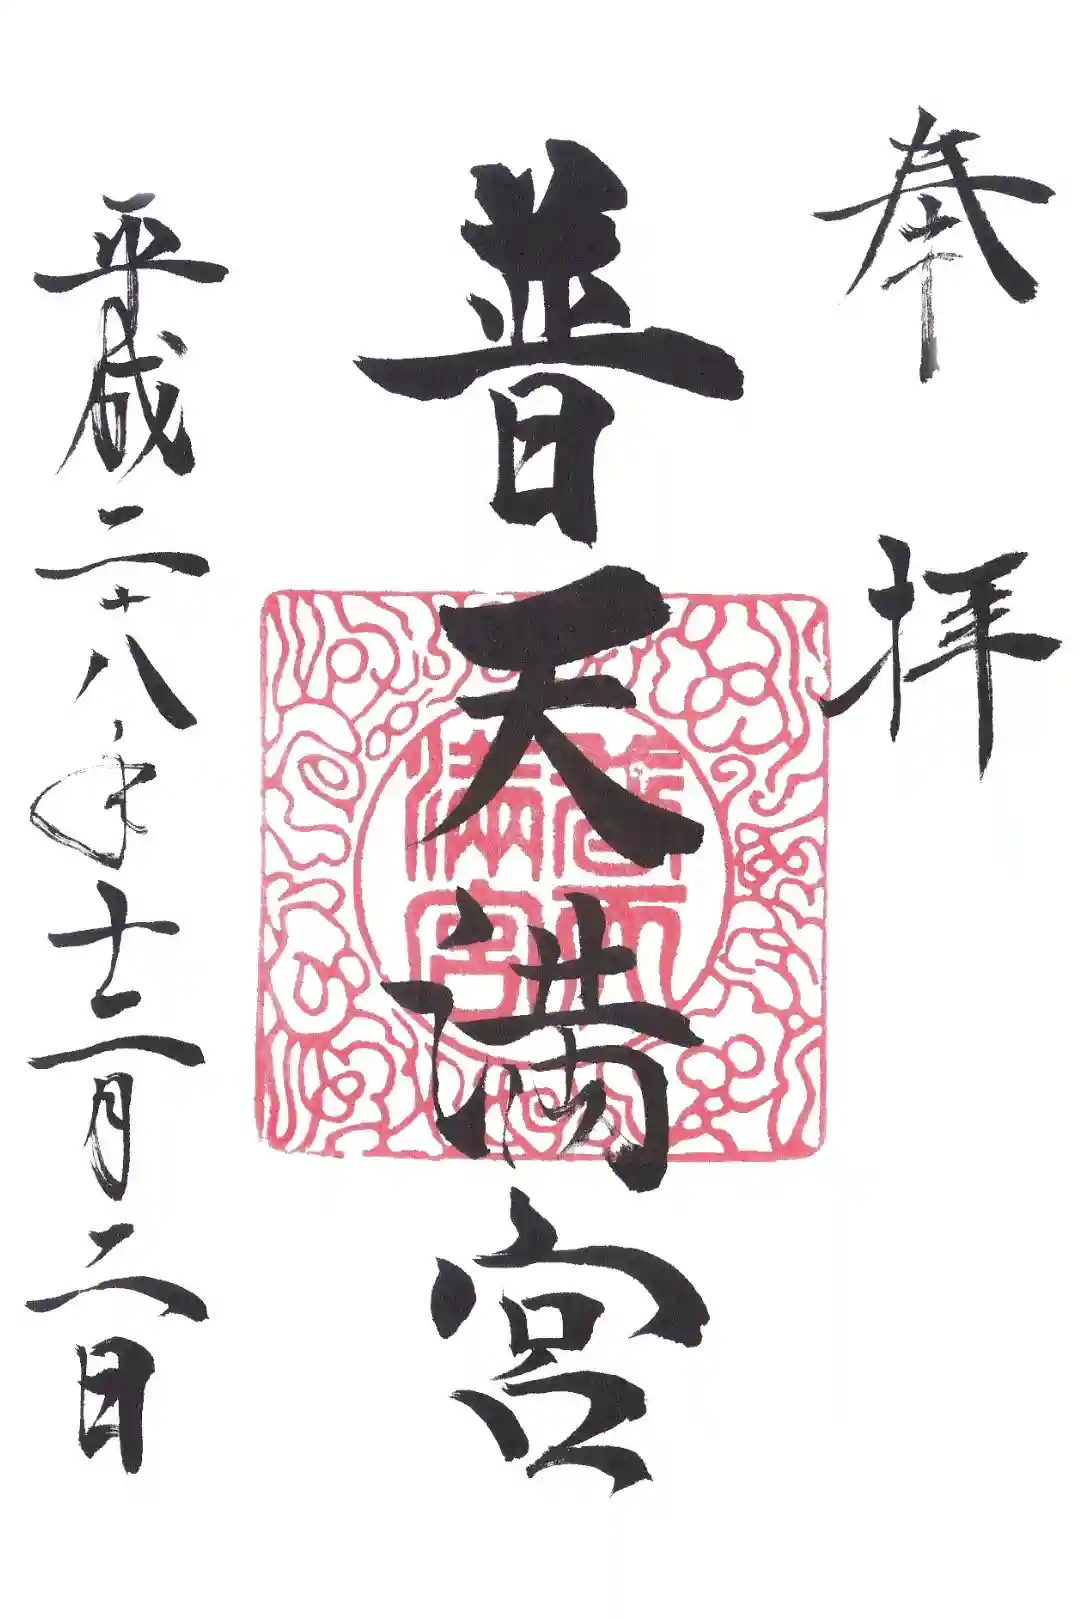 奉拝
普天満宮
平成二十八年十二月二日
普天
満宮